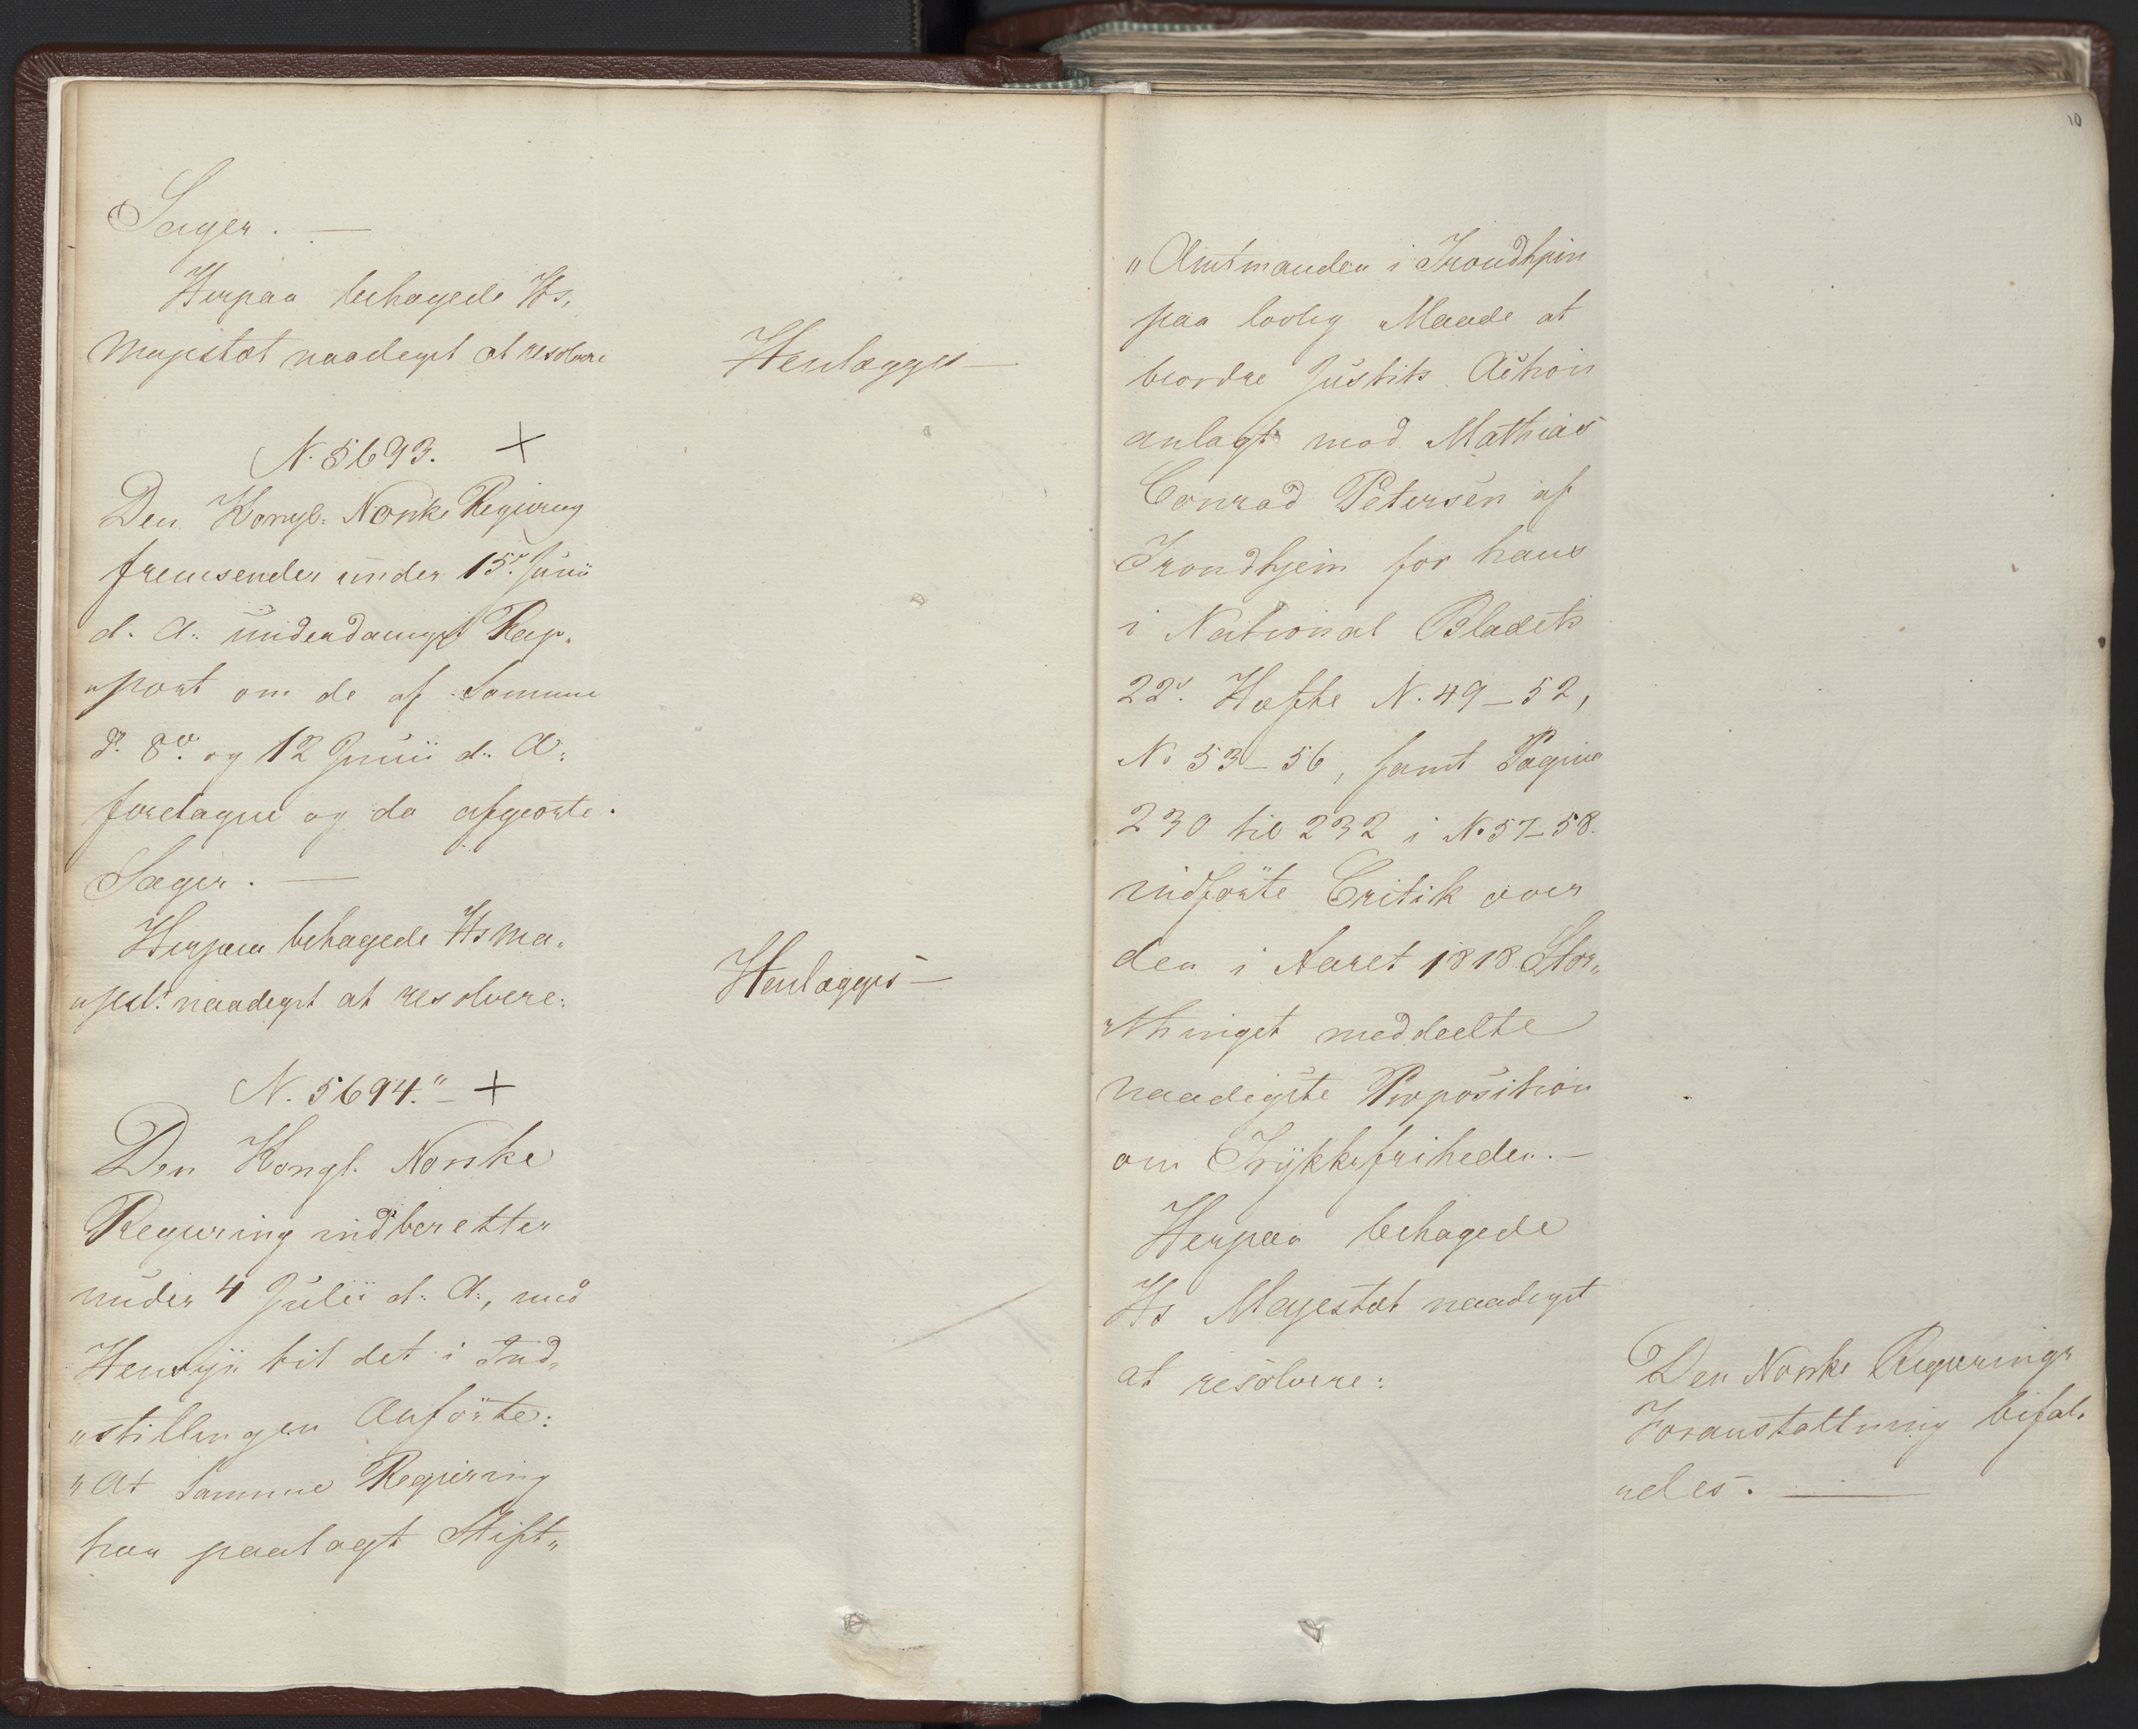 Sager. —
Herpaa behagede Hs.
Majestæt naadigst at resolvere
Henlægges —
N. 5693. +
Den Kongl: Norske Regiering
fremsender under 15d. Junii
d. A: underdanigst Rap„
„port om de af Samme
d. 8de og 12 Junii d: A:
foretagne og da afgiorte
Sager. —
Herpaa behagede Hs Ma„
„jest: naadigst at resolvere:
Henlægges —
N. 5694." – +
Den Kongl. Norske
Regiering indberetter
under 4 Julii d: A:, med
Hensyn til det i Ind„
„stillingen Anförte:
„At Samme Regiering
har paalagt Stift„
10
„Amtmanden i Trondhjem
paa lovlig Maade at
beordre Justits Action
anlagt mod Mathias
Conrad Petersen af
Trondhjem for hans
i National Bladets
22d. Hæfte N. 49–52,
No 53–56, samt Pagina
230 til 232 i No 57–58.
indförte Critik over
den i Aaret 1818 Stor„
„thinget meddeelte
naadigste Proposition
om Trÿkkefriheden. —
Herpaa behagede
Hs Majestæt naadigst
at resolvere:
Den Norske Regierings
Foranstaltning bifal„
„des. —